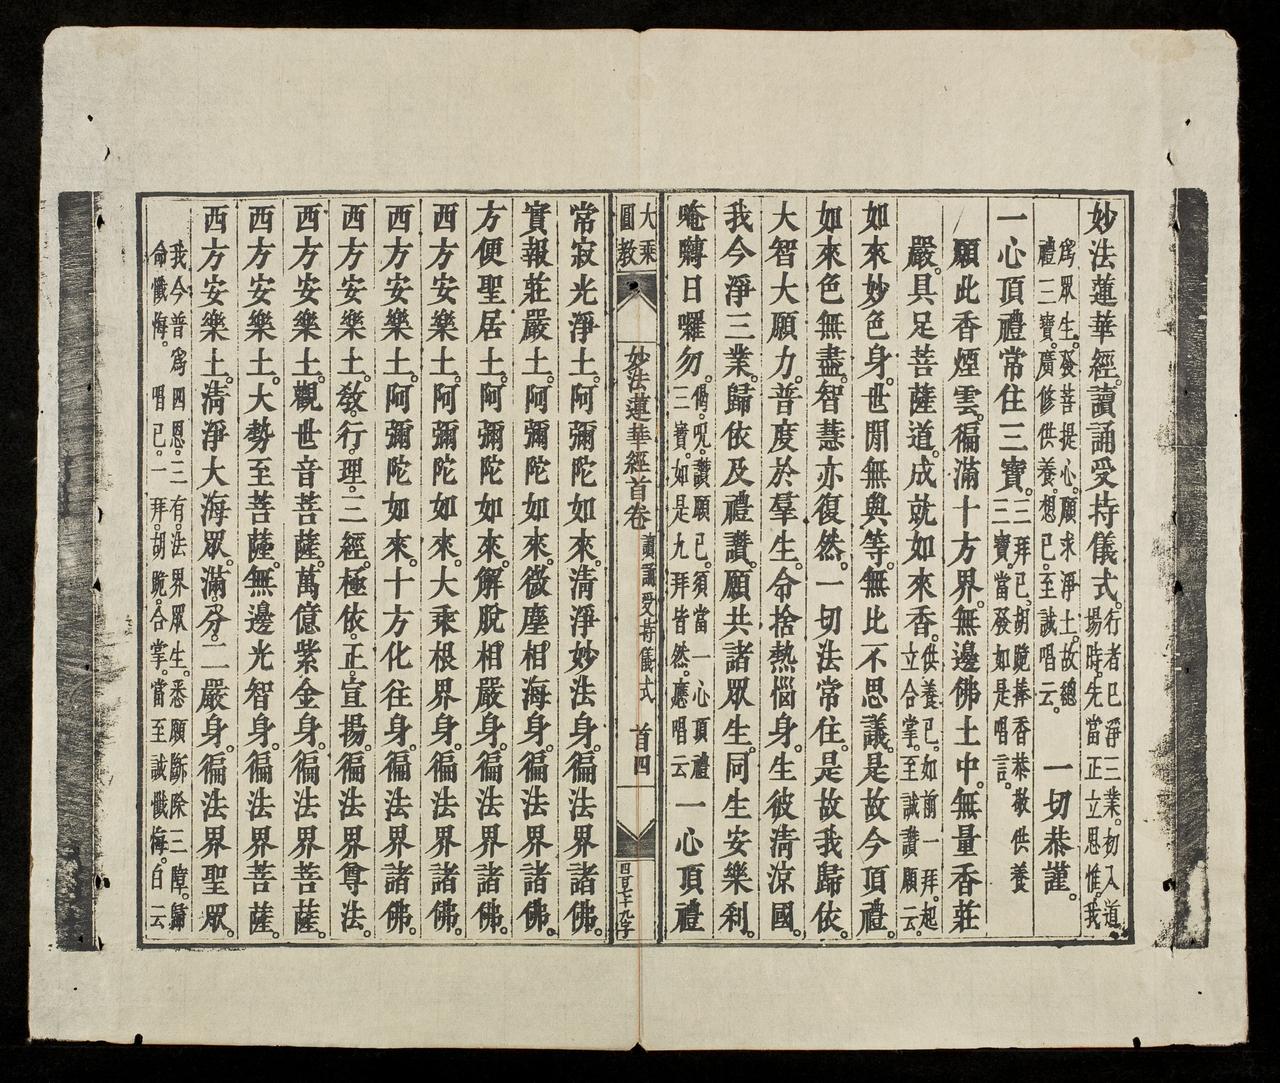 妙法蓮華經。讀誦受持儀式。行者已淨三業。初入道場時。先當正立思惟。我
爲眾生。發菩提心。願求淨土。故總禮三寶。廣修供養。想已。至誠唱云。 一切恭謹。
一心頂禮常住三寶。三拜已。胡跪捧香恭敬供養三寶。當發如是唱言。
願此香煙雲。徧滿十方界。無邊佛土中。無量香莊
嚴。具足菩薩道。成就如來香。供養已。如前一拜。起立合掌。至誠讚願云。
如來妙色身。世閒無與等。無比不思議。是故今頂禮。
如來色無盡。智慧亦復然。一切法常住。是故我歸依。
大智大願力。普度於羣生。命捨熱惱身。生彼清涼國。
我今淨三業。歸依及禮讚。願共諸眾生。同生安樂刹。
唵嚩日囉勿。偈。呪。讚願已。須當一心頂禮三寶。如是九拜皆然。應唱云 一心頂禮
大乘圓教
妙法蓮華經首卷 讀誦受持儀式 首四
四百七十九字
常寂光淨土。阿彌陀如來。清淨妙法身。徧法界諸佛。
實報莊嚴土。阿彌陀如來。微塵相海身。徧法界諸佛。
方便聖居土。阿彌陀如來。解脫相嚴身。徧法界諸佛。
西方安樂土。阿彌陀如來。大乘根界身。徧法界諸佛。
西方安樂土。阿彌陀如來。十方化往身。徧法界諸佛。
西方安樂土。教。行。理。三經。極依。正宣揚。徧法界尊法。
西方安樂土。觀世音菩薩。萬億紫金身。徧法界菩薩。
西方安樂土。大勢至菩薩。無邊光智身。徧法界菩薩。
西方安樂土。清淨大海眾。滿分。二嚴身。徧法界聖眾。
我今普爲四恩。三有。法界眾生。悉願斷除三障。歸命懺悔。 唱已。一拜。胡跪。合掌。當至誠懺悔。白云